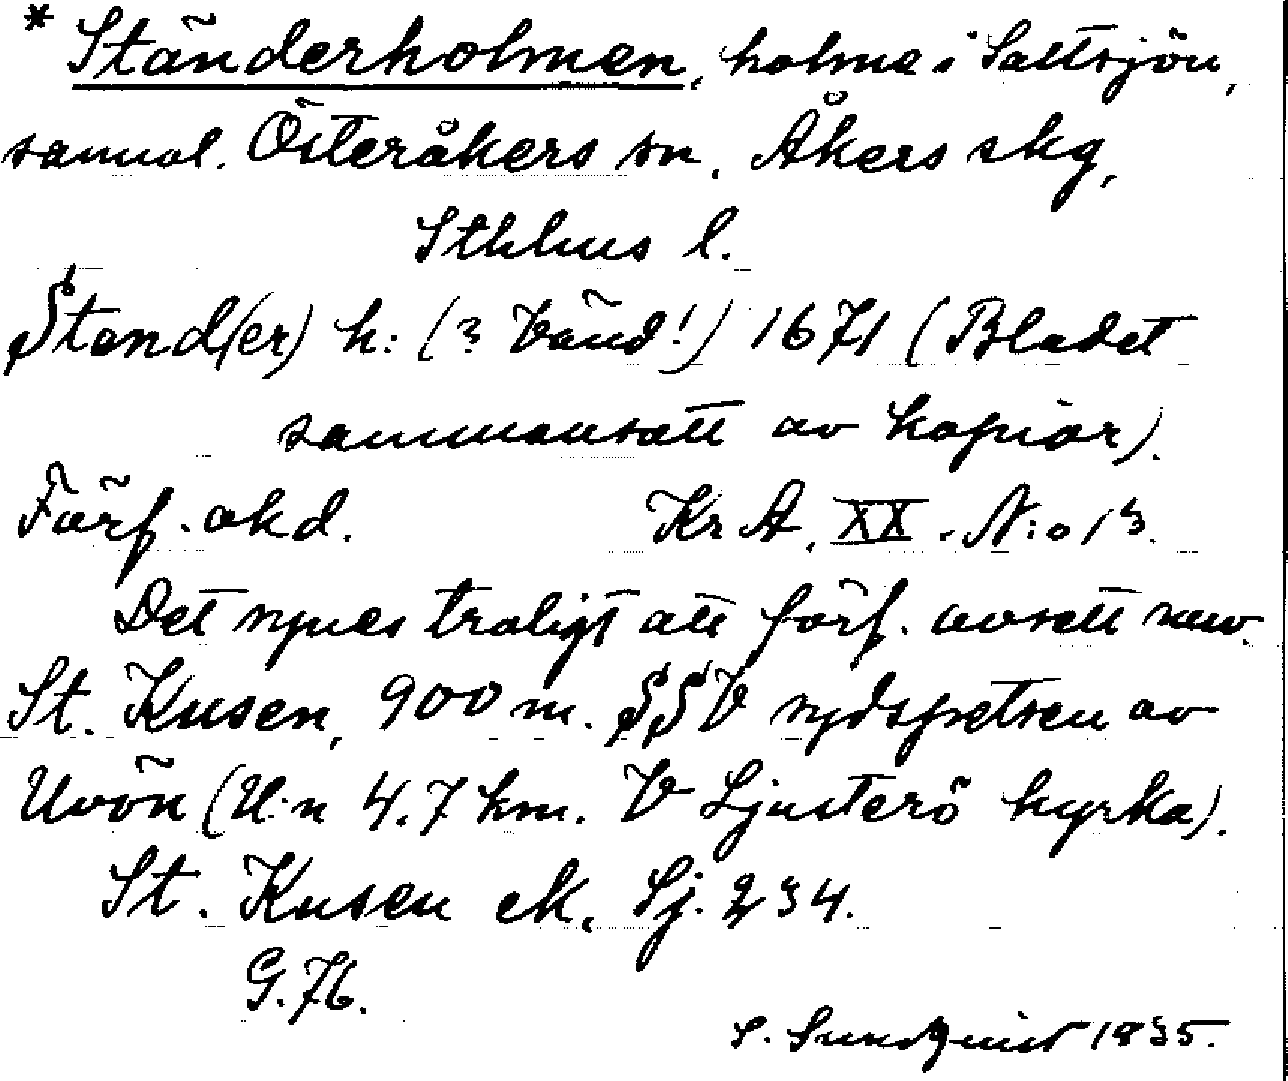 * Ständerholmen, holme i Saltsjön,
sannol. Österåkers sn, Åkers skg,
Sthlms l.
Stand(er) h: (? Vänd!) 1671 (Bladet
sammansatt av kopior).
Förf. okd. KrA, XX. N:o 13.
Det synes troligt att förf. avsett nuv.
St. Kusen, 900 m. SSV sydspetsen av
Uvön (U:n 4.7 km. V Ljusterö kyrka).
St. Kusen ek. Sj. 234.
G. 76.
S. Sundquist 1935.